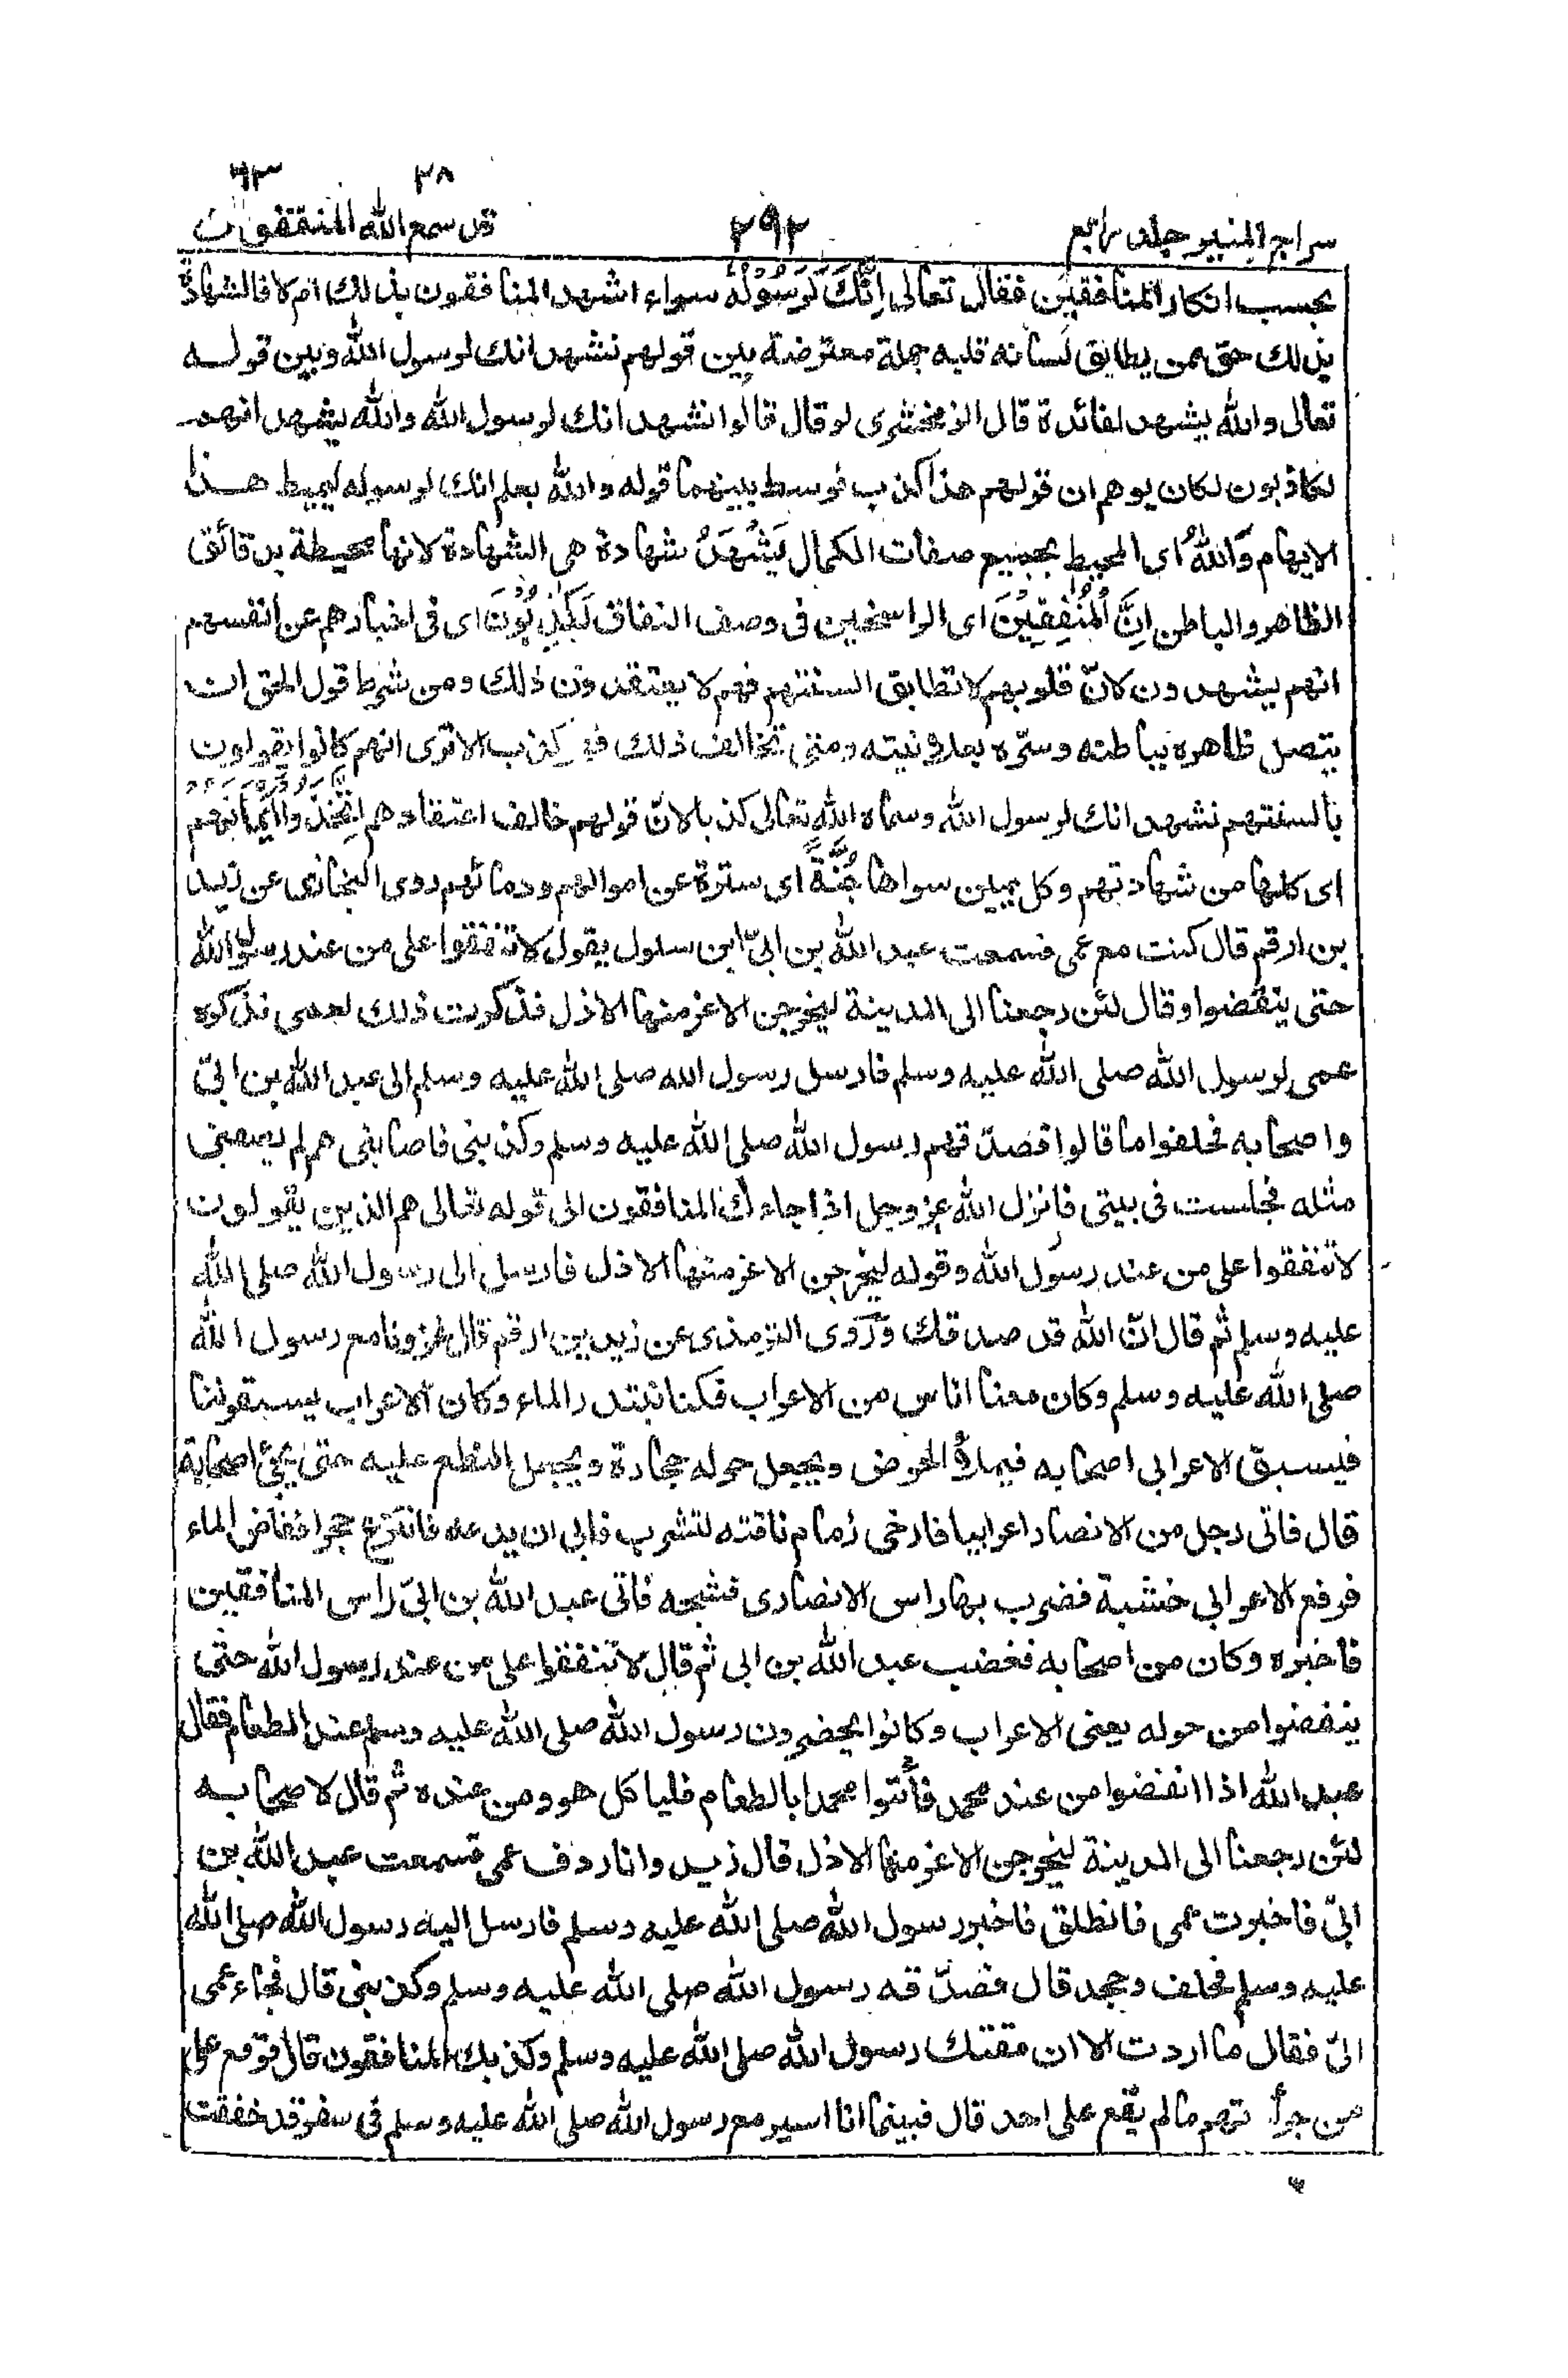 ٦٣ ٢٨
سراج المنير جلد رابع ٢٩٢ قد سمع الله المنفقون
بحسب انكار المنافقين فقال تعالى اِنَّكَ لَرَسُوْلُهٗ سواء اشهد المنافقون بذلك ام لا فالشهادة
بذلك حق ممن يطابق لسانه قلبه جملة معترضة بين قولهم نشهد انك لرسول الله وبين قوله
تعالى والله يشهد لفائدة قال الزمخشرى لو قال قالوا نشهد انك لرسول الله والله يشهد انهم
لكاذبون لكان يوهم ان قولهم هذا كذب فوسط بينهما قوله والله يعلم انك لرسوله ليميط هذا
الايهام وَاللّٰهُ اى المحيط بجميع صفات الكمال يَشْهَدُ شهادة هى الشهادة لانها محيطة بدقائق
الظاهر والباطن اِنَّ الْمُنٰفِقِيْنَ اى الراسخين فى وصف النفاق لَكٰذِبُوْنَ اى فى اخبارهم عن انفسهم
انهم يشهدون لانّ قلوبهم لا تطابق السنتهم فهم لا يعتقدون ذلك ومن شرط قول الحق ان
يتصل ظاهره بباطنه وسرّه بعلانيته ومتى تخالف ذلك فهو كذب الا ترى انهم كانوا يقولون
بألسنتهم نشهد انك لرسول الله وسماه الله تعالى كذبا لانّ قولهم خالف اعتقادهم اِتَّخَذُوْا اَيْمَانَهُمْ
اى كلها من شهادتهم وكل يمين سواها جُنَّةً اى سترة عن اموالهم ودمائهم روى البخارى عن زيد
بن ارقم قال كنت مع عمى فسمعت عبد الله بن ابىّ ابن سلول يقول لا تنفقوا على من عند رسول الله
حتى ينفضوا وقال لئن رجعنا الى المدينة ليخرجن الاعز منها الاذل فذكرت ذلك لعمى فذكره
عمى لرسول الله صلى الله عليه وسلم فارسل رسول الله صلى الله عليه وسلم الى عبد الله بن ابىّ
واصحابه فحلفوا ما قالوا فصدّقهم رسول الله صلى الله عليه وسلم وكذبنى فاصابنى هم لم يصبنى
مثله فجلست فى بيتى فانزل الله عز وجل اذا جاءك المنافقون الى قوله تعالى هم الذين يقولون
لا تنفقوا على من عند رسول الله وقوله ليخرجن الاعز منها الاذل فارسل الى رسول الله صلى الله
عليه وسلم ثم قال انّ الله قد صدقك وَرَوى الترمذى عن زيد بن ارقم قال غزونا مع رسول الله
صلى الله عليه وسلم وكان معنا اناس من الاعراب فكنا نبتدر الماء وكان الاعراب يسبقوننا
فيسبق الاعرابى اصحابه فيملأ الحوض ويجعل حوله حجارة ويجعل النطع عليه حتى يجئ اصحابه
قال فاتى رجل من الانصار اعرابيا فارخى زمام ناقته لتشرب فابى ان يدعه فانتزع حجرا ففاض الماء
فرفع الاعرابى خشبة فضرب بها راس الانصارى فشجه فاتى عبد الله بن ابىّ راس المنافقين
فاخبره وكان من اصحابه فغضب عبد الله بن ابى ثم قال لا تنفقوا على من عند رسول الله حتى
ينفضوا من حوله يعنى الاعراب وكانوا يحضرون رسول الله صلى الله عليه وسلم عند الطعام فقال
عبد الله اذا انفضوا من عند محمد فأتوا محمدا بالطعام فلياكل هو ومن عنده ثم قال لاصحابه
لئن رجعنا الى المدينة ليخرجن الاعز منها الاذل قال زيد وانا ردف عمى فسمعت عبد الله بن
ابىّ فاخبرت عمى فانطلق فاخبر رسول الله صلى الله عليه وسلم فارسل اليه رسول الله صلى الله
عليه وسلم فحلف وجحد قال فصدّقه رسول الله صلى الله عليه وسلم وكذبنى قال فجاء عمى
الىّ فقال ما اردت الا ان مقتك رسول الله صلى الله عليه وسلم وكذبك المنافقون قال فوقع علىّ
من جرأتهم ما لم يقع على احد قال فبينما انا اسير مع رسول الله صلى الله عليه وسلم فى سفر قد خفقت